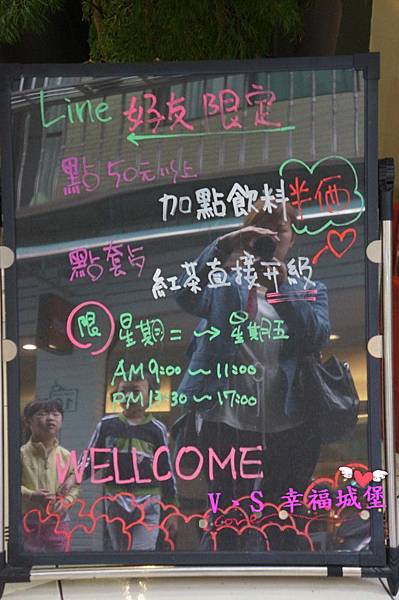 Line 好友限定
點50元以上
加點飲料半価
點套餐
紅茶直接升級
限 星期二～星期五
AM 9:00～11:00
PM 13:30～17:00
WELLCOME
V‧S 幸福城堡
Love